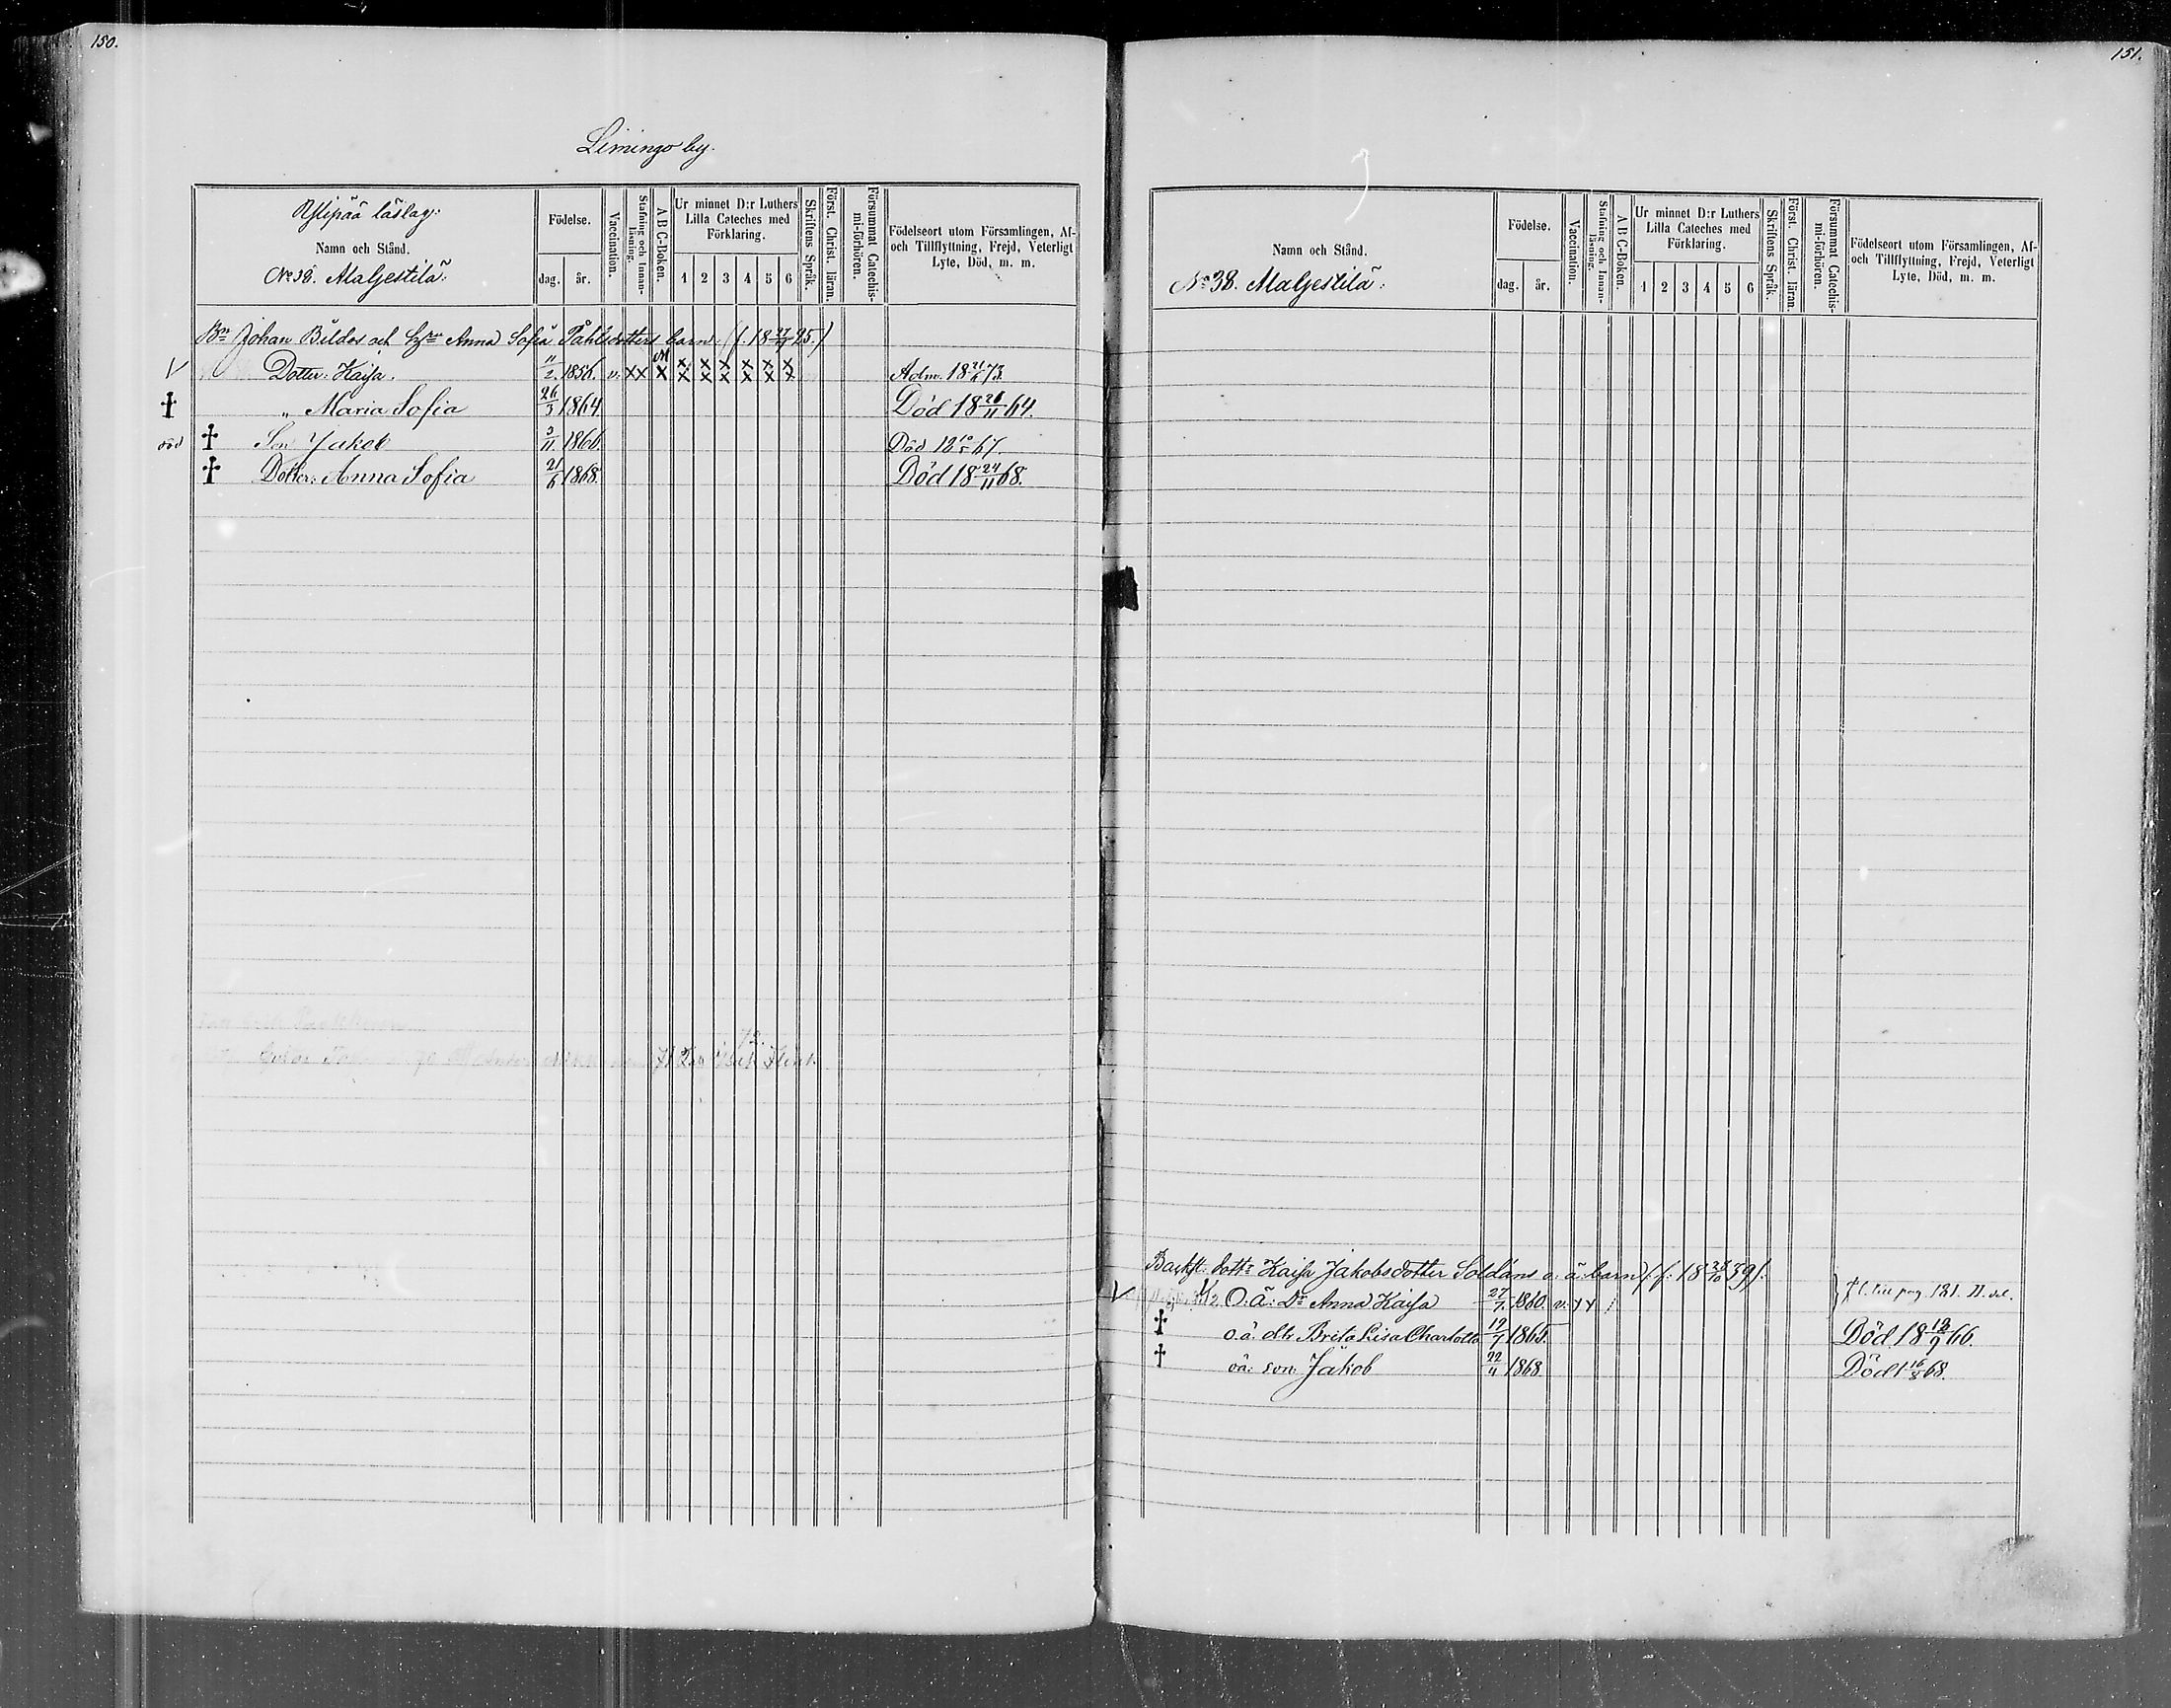 150.
Limingo by.
Ylipää läslag:
Namn och Stånd.
No 38. Maljestilä:
Födelse.
dag. år.
Vaccination.
Stafning och Innan-läsning.
A B C-Boken.
Ur minnet D:r Luthers
Lilla Cateches med
Förklaring.
1 2 3 4 5 6
Skriftens Språk.
Först. Christ. läran.
Försummat Catechis-mi-förhören.
Födelseort utom Församlingen, Af-
och Tillflyttning, Frejd, Veterligt
Lyte, Död, m. m.
Bn Johan Bildos och Anna Sofia Påhlsdotters barn (f. 18 25.)
V Dotter: Kaisa. 11/2. 1856. v. X X X X X X X X X Adm. 18 21/6 73.
† „ Maria Sofia 26/3 1864. Död 18 26/11 64.
död † Son Jakob 3/11. 1866. Död 18 10/5 67.
† Dotter: Anna Sofia 21/6 1868. Död 18 24/11 68.
72.
151.
Namn och Stånd.
No 38. Maljestilä:
Födelse.
dag. år.
Vaccination.
Stafning och Innan-läsning.
A B C-Boken.
Ur minnet D:r Luthers
Lilla Cateches med
Förklaring.
1 2 3 4 5 6
Skriftens Språk.
Först. Christ. läran.
Försummat Catechis-mi-förhören.
Födelseort utom Församlingen, Af-
och Tillflyttning, Frejd, Veterligt
Lyte, Död, m. m.
Backst: dottr Kaisa Jakobsdotter Soldans o. ä. barn (f. 18 /10 39).
V O. ä: Dr Anna Kaisa 27/7. 1860. v. pag. 181. II. del.
† o. ä. dtr Brita Lisa Charlotta 19/1 1865. Död 18 18/9 66.
† oä: son: Jakob 22/4 1868. Död 1 16/8 68.